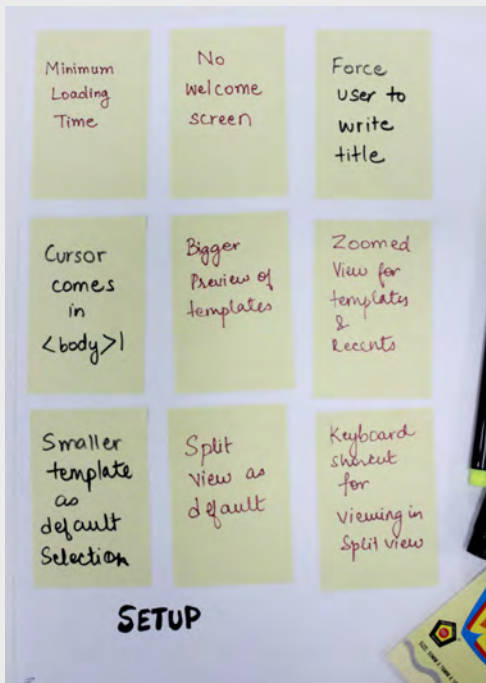 Minimum
Loading
Time
No
welcome
screen
Force
user to
write
title
Cursor
comes
in
<body>|
Bigger
Preview of
templates
Zoomed
View for
templates
&
Recents
Smaller
template
as
default
Selection
Split
view as
default
Keyboard
shortcut
for
viewing in
Split view
SETUP